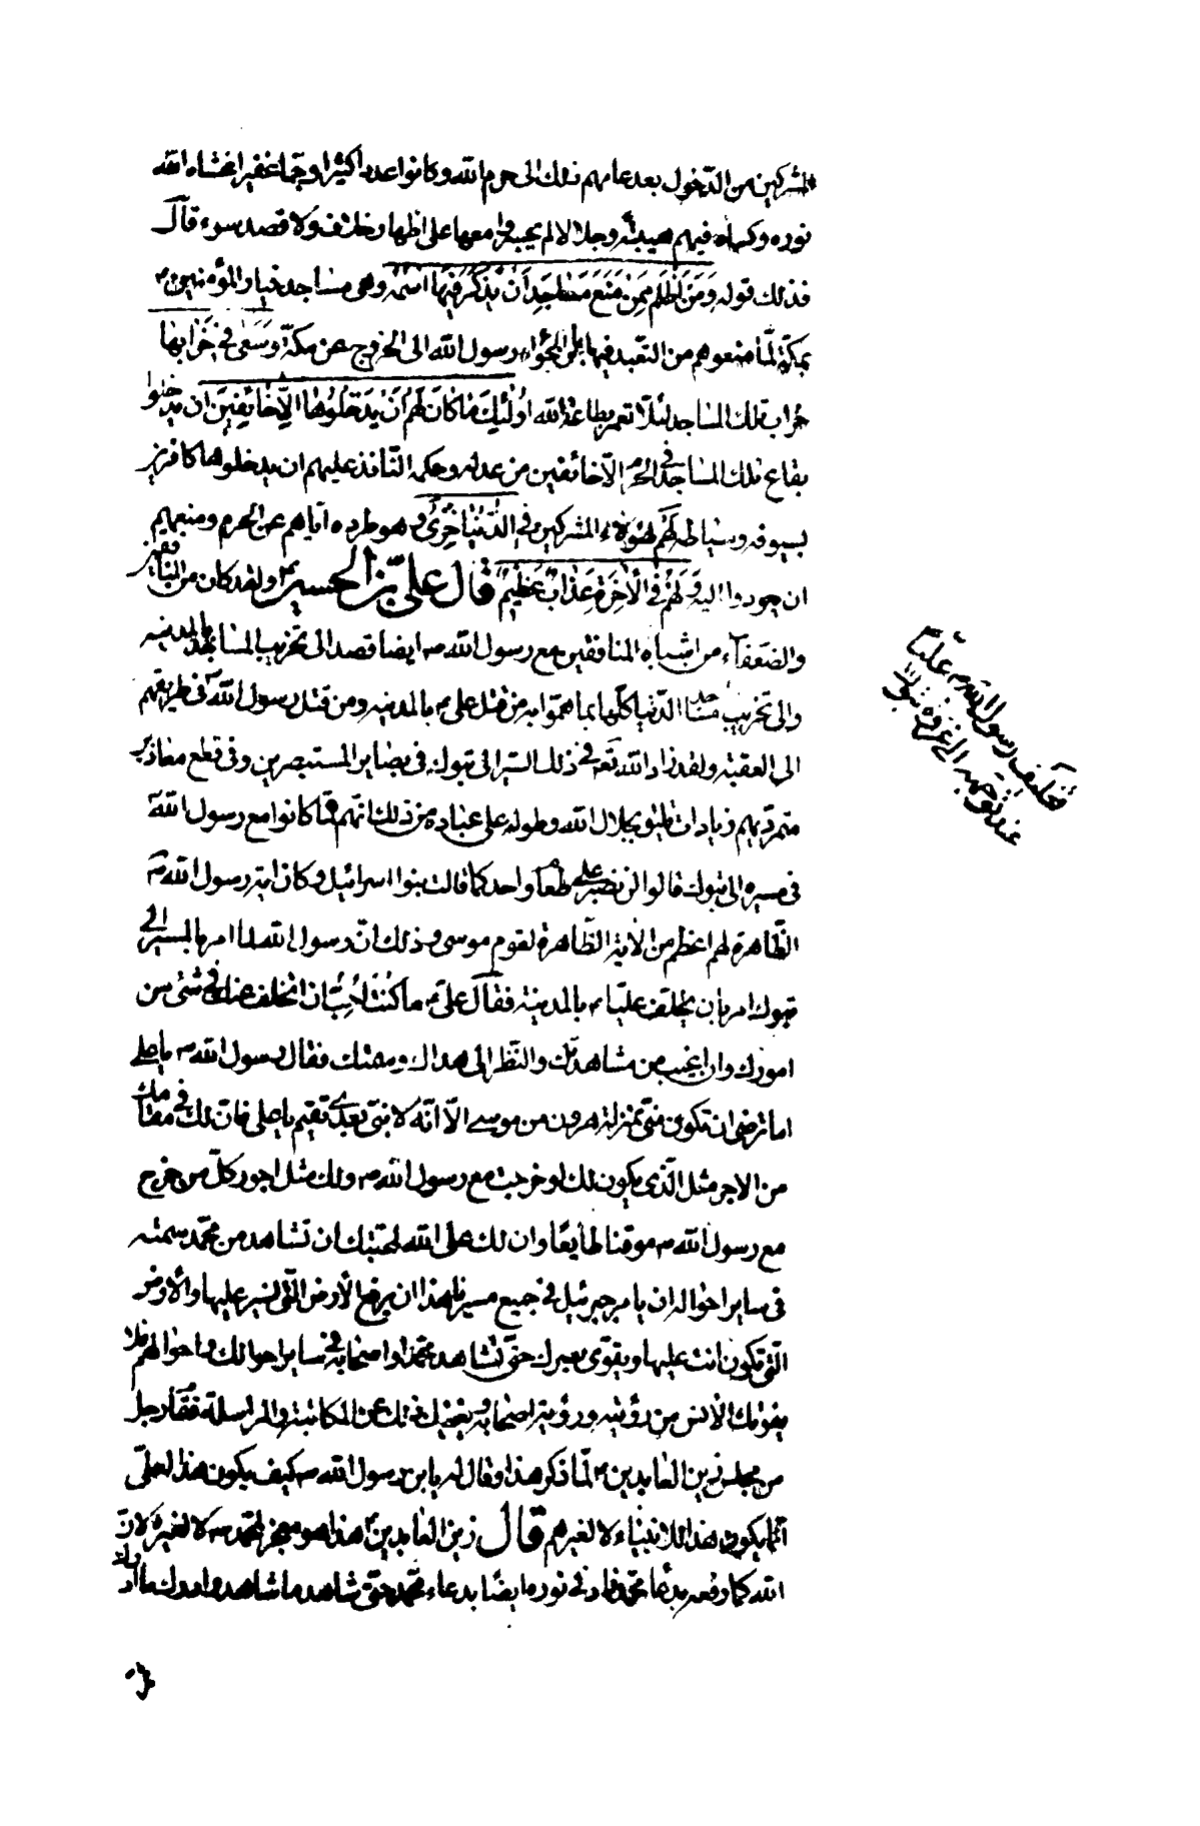 المشركين من الدّخول بعد عامهم ذلك الى حرم الله وكانوا عددا كثيرا وجمّا غفيرا غشاه الله
نوره وكساه فيهم هيبته وجلالا لم يجبروا معها على اظهار خلاف ولا قصد بسوء قال
فذلك قوله وَمَنْ اَظْلَمُ مِمَّنْ مَنَعَ مَسَاجِدَ اَنْ يُذْكَرَ فِيهَا اسْمُهُ وهى مساجد خيار المؤمنين
بمكّة لمّا منعوهم من التعبد فيها بان الجؤا رسول الله الى الخروج عن مكّة وَسَعٰى فِي خَرَابِهَا
خراب تلك المساجد لئلّا تعمر بطاعة الله اُولٰئِكَ مَا كَانَ لَهُمْ اَنْ يَدْخُلُوهَا اِلَّا خَائِفِينَ ان يدخلوا
بقاع تلك المساجد فى الحرم الّا خائفين من عدله وحكمه النّافذ عليهم ان يدخلوها كافرين
بسيوفه وسياطه لَهُمْ لهؤلاء المشركين فِي الدُّنْيَا خِزْيٌ وهو طرده ايّاهم عن الحرم ومنعهم
ان يعودوا اليه وَلَهُمْ فِي الْاٰخِرَةِ عَذَابٌ عَظِيمٌ قال علىّ بن الحسين ولقد كان من المنافقين
والضعفاء من اشباه المنافقين مع رسول الله ص ايضا قصد الى تخريب المساجد بالمدينه
والى تخريب مساجد الدّنيا كلّها بما همّوا به من قتل علىّ بالمدينه ومن قتل رسول الله فى طريقهم
الى العقبة ولقد زاد الله تعه فى ذلك السّير الى تبوك فى بصاير المستبصرين وفى قطع معاذير
متمرّديهم زيادات تليق بجلال الله وطوله على عباده من ذلك انّهم لمّا كانوا مع رسول الله
فى مسيره الى تبوك قالوا لن نصبر على طعام واحد كما قالت بنوا اسرائيل وكان اية رسول الله
الظّاهرة لهم اعظم من الاية الظّاهرة لقوم موسى وذلك انّ رسول الله لما امر بالمسير الى
تبوك امر بان يخلّف عليّا بالمدينة فقال علىّ ما كنت احبّ ان اتخلّف عنك فى شئ من
امورك وان اغيب من مشاهدتك والنّظر الى هداك وسمتك فقال رسول الله ص يا على
اما ترضى ان تكون منّى بمنزلة هرون من موسى الّا انّه لا نبىّ بعدى تقيم يا على فانّ لك فى مقامك
من الاجر مثل الّذى يكون لك لو خرجت مع رسول الله ص ولك مثل اجور كلّ من خرج
مع رسول الله ص موقنا طايعا وان لك على الله لمحبّتك ان تشاهد من محمّد سمته
فى ساير احواله ان يامر جبرئيل فى جميع مسيرنا هذا ان يرفع الأرض الّتى نسير عليها والأرض
الّتى تكون انت عليها ويقوّى بصرك حتّى تشاهد محمّدا واصحابه فى ساير احوالك واحوالهم فلا
يفوتك الانس من رؤيته ورؤية اصحابه ويغنيك ذلك عن المكاتبة والمراسلة فقام رجل
من مجلس زين العابدين لمّا ذكر هذا وقال له يابن رسول الله ص كيف يكون هذا لعلىّ
انّما يكون هذا للانبياء لا لغيرهم قال زين العابدين هذا هو معجز لمحمّد ص لا لغيره لانّ
الله كما رفعه بدعاء محمّد زاد فى نوره ايضا بدعاء محمّد حتّى شاهد ما شاهد وادرك ما ادرك
تخليف رسول الله ص عليّا
عند توجّهه الى غزوة تبوك